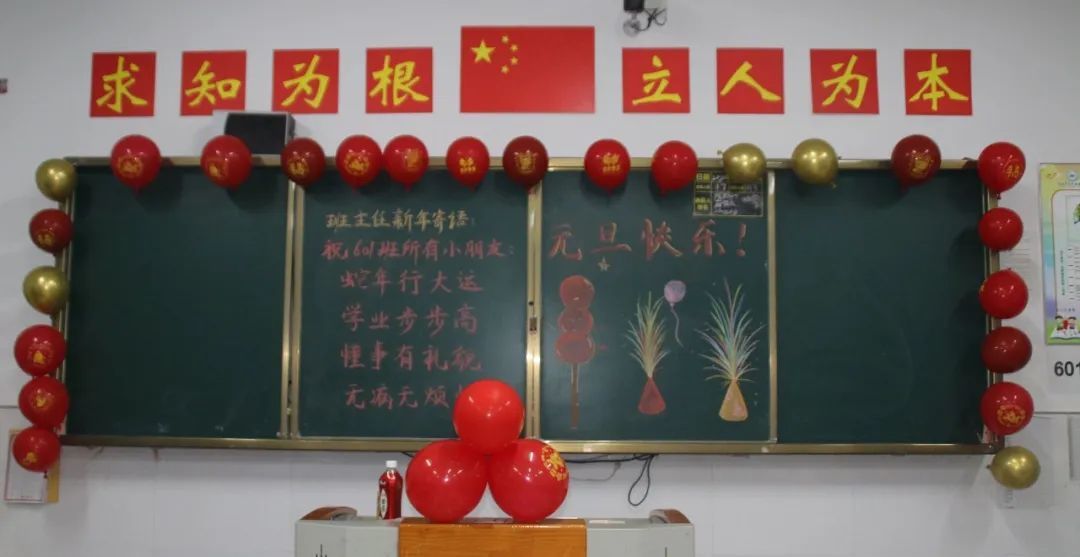 求知为根 立人为本
班主任新年寄语:
祝601班所有小朋友:
蛇年行大运
学业步步高
懂事有礼貌
无病无烦
元旦快乐!
日期
601